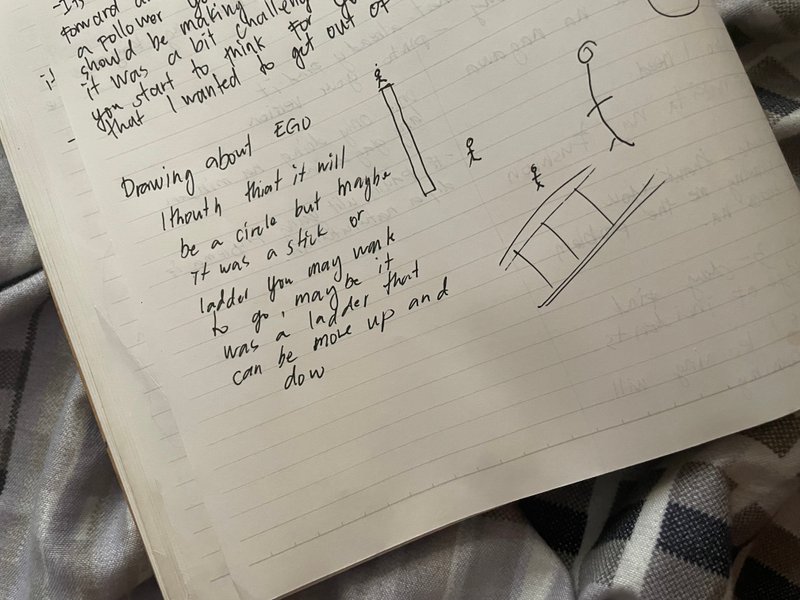 forward a
a follower yo
should be making
it was a bit challeng
you start to think for yo
that I wanted to get out of
Drawing about EGO
I thouth that it will
be a circle but maybe
it was a stick or
ladder you may wank
to go, maybe it
was a ladder that
can be move up and
dow